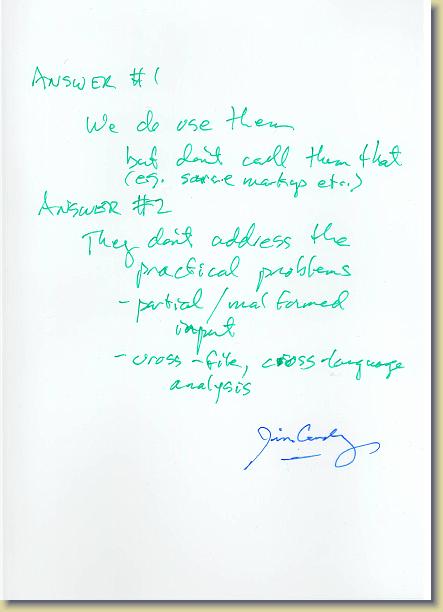 ANSWER #1
We do use them
but don't call them that
(eg. source markup etc.)
ANSWER #2
They don't address the
practical problems
- partial / malformed
input
- cross-file, cross-language
analysis
Jim Cordy